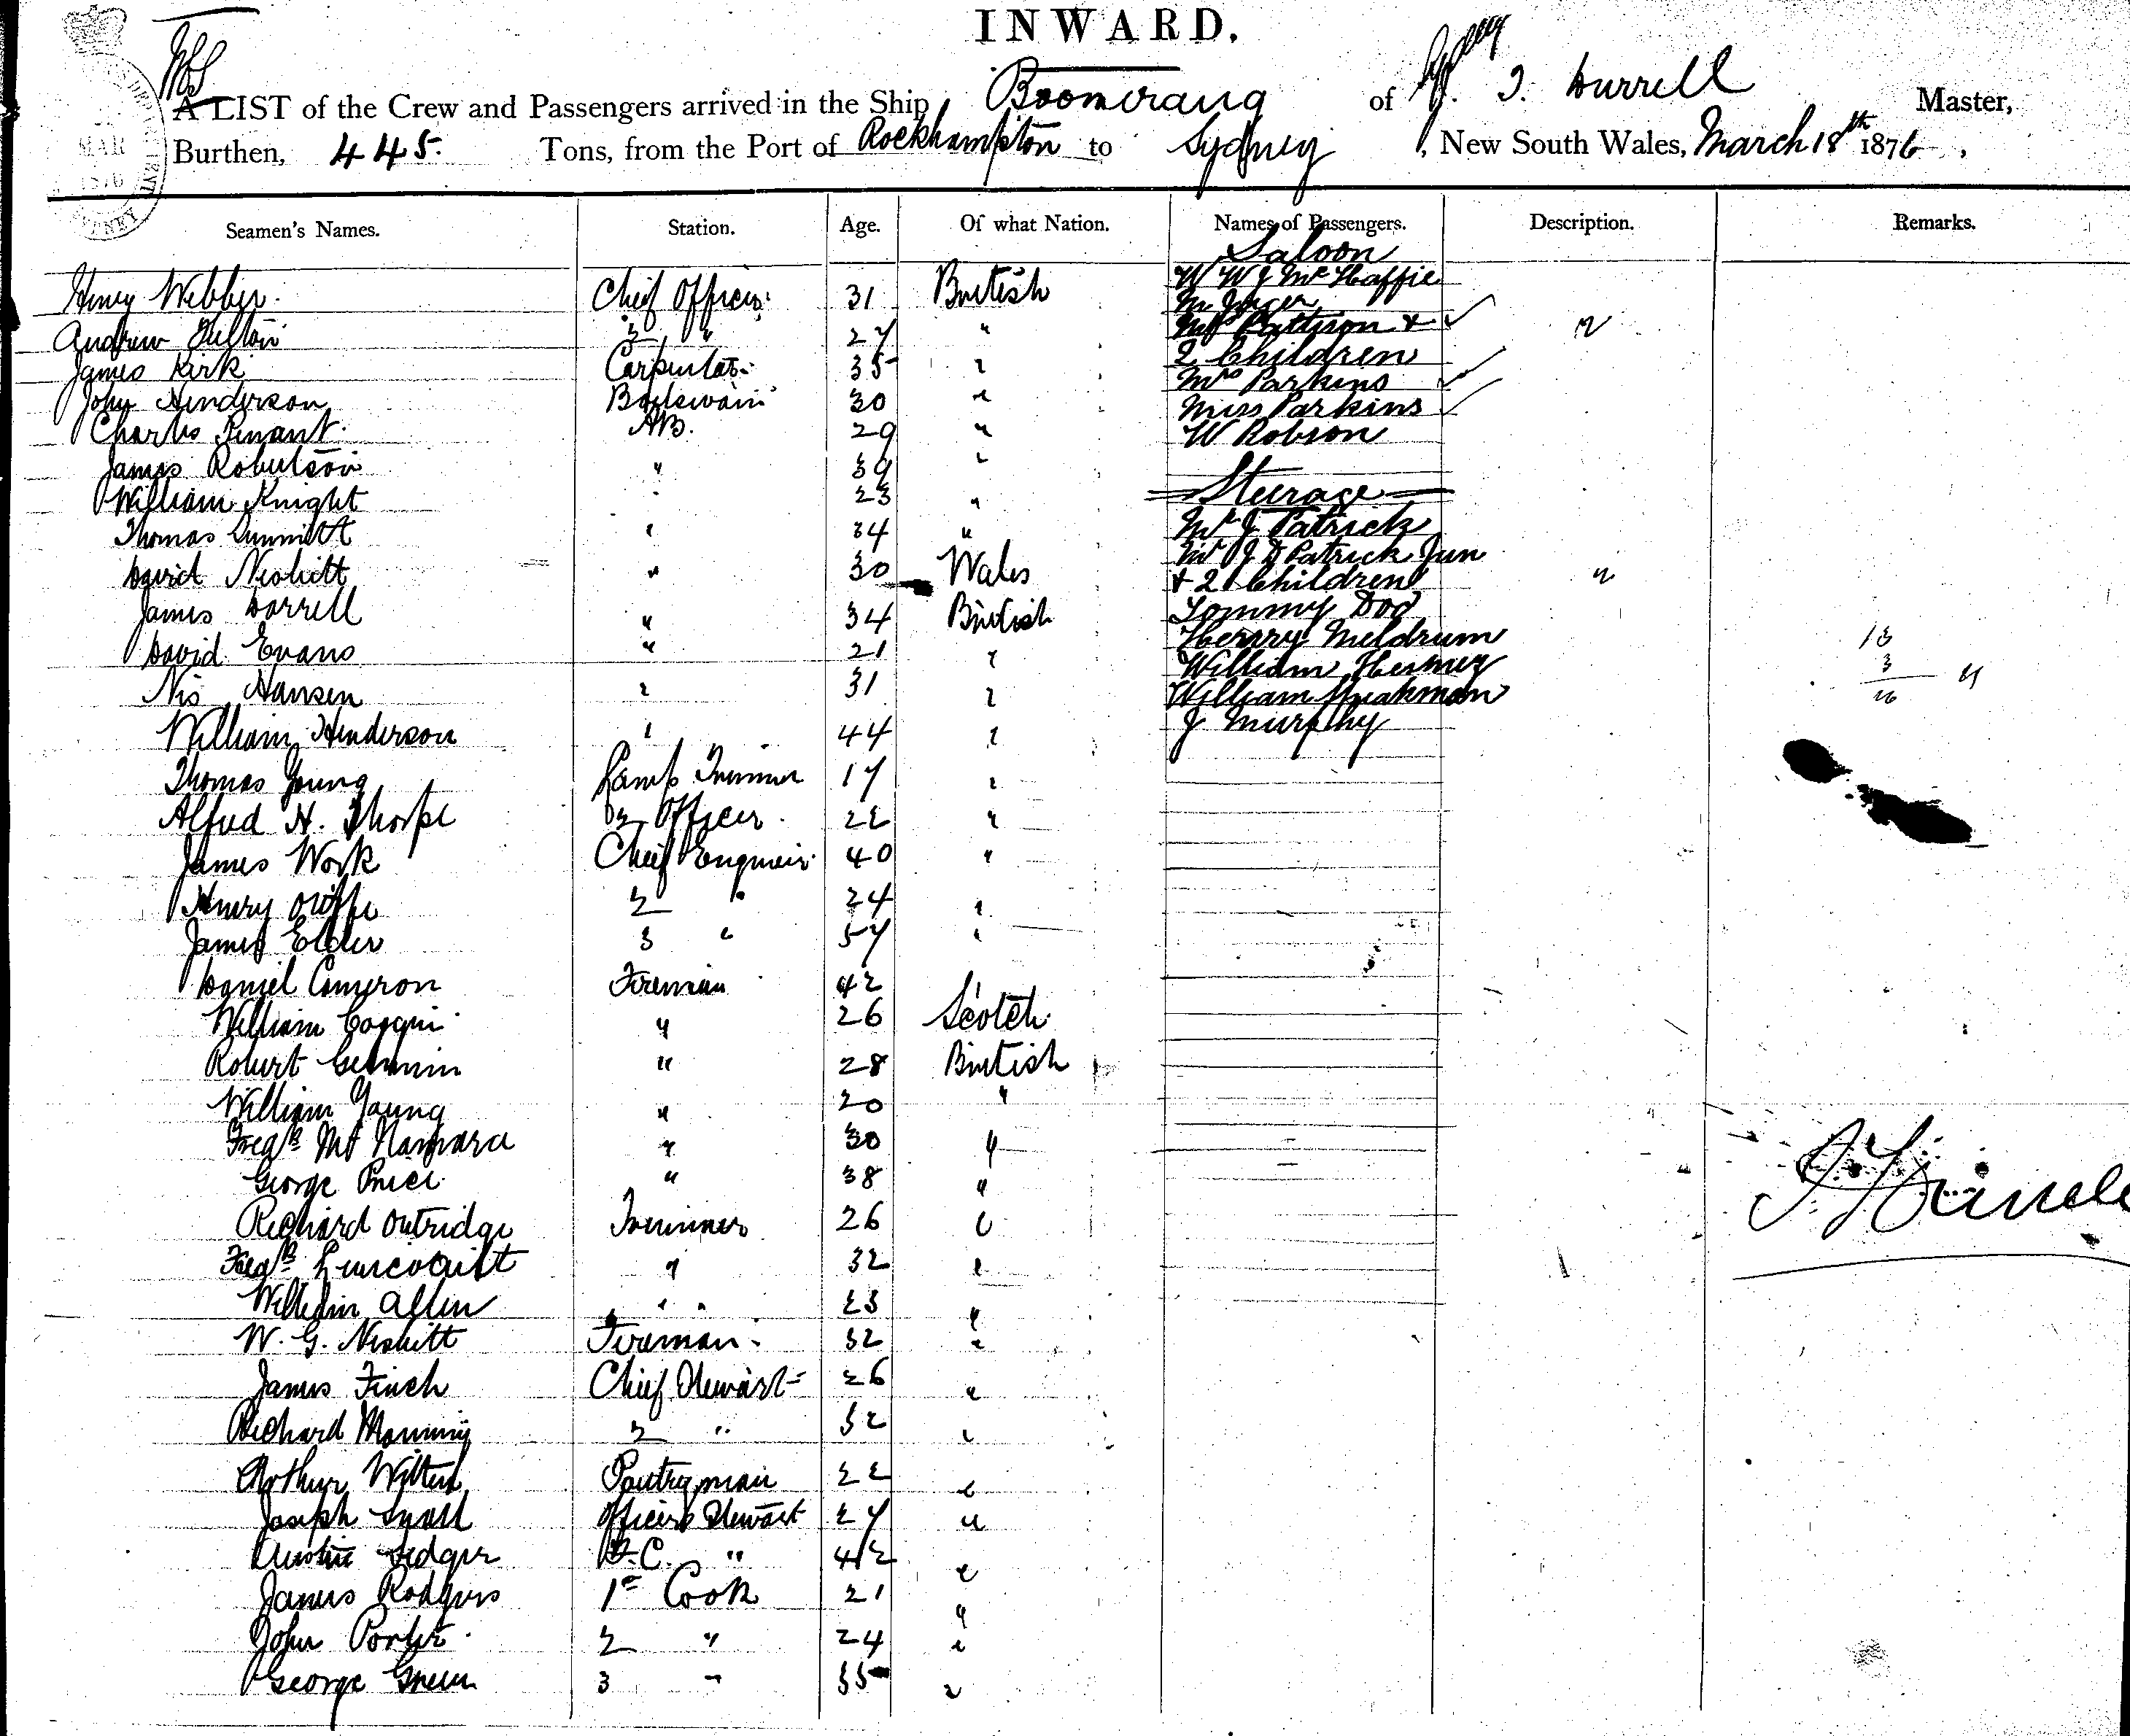 INWARD.
A LIST of the Crew and Passengers arrived in the Ship Boomerang of J. T. Durrell Master,
Burthen, 445 Tons, from the Port of Rockhampton to Sydney, New South Wales, March 18th 1876,
Seamen's Names. Station. Age. Of what Nation. Names of Passengers. Description. Remarks.
Saloon
Henry Webber Chief Officer 31 British W W J McHaffie
Andrew 2 " 27 " Mrs Pattison +
James Kirk Carpenter 35 " 2 Children
John Henderson Boatswain 30 " Mrs Parkins
Charles AB. 29 " Miss Parkins
W Robson
James Robertson " 39 "
William Knight " 23 " Steerage
Thomas " 34 " Mr J Patrick
Mr J D Patrick Jun
David Nesbitt " 30 Wales + 2 Children
James Dorrell " 34 British Tommy Dod
David Evans " 21 " Henry Meldrum
William
Nis Hansen " 31 " William
William Henderson " 44 " J Murphy
Thomas Young Lamp Trimmer 17 "
Alfred H. Thorpe Officer 22 "
James Work Chief Engineer 40 "
Henry 2 " 24 "
James Elder 3 " 57 "
Daniel Cameron Fireman 42
William " 26 Scotch
Robert " 28 British
William Young " 20 "
Mc Namara " 30 "
George Price " 38 "
Richard Outridge Trimmer 26 "
" 32 "
William Allen " " 23 "
W. G. Nesbitt Fireman 32 "
James Finch Chief Steward 26 "
Richard Manning 2 " 32 "
Arthur Pantryman 22 "
Joseph Officers Steward 27 "
" 42 "
James Rodgers 1st Cook 21 "
John Porter 2 " 24 "
George Green 3 " 35 "